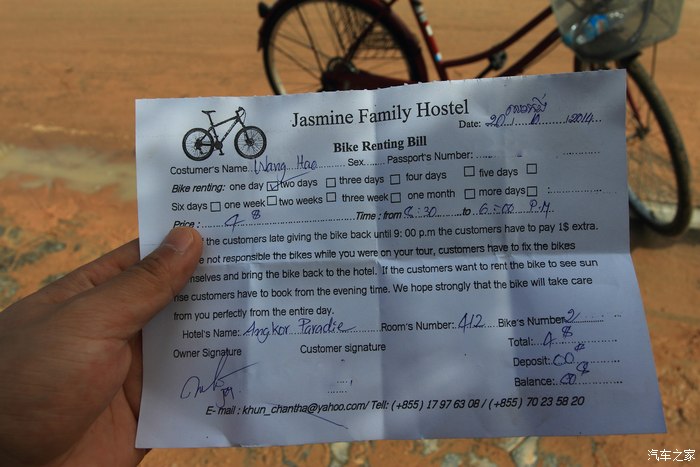 Jasmine Family Hostel
Date: 20 2014
Bike Renting Bill
Costumer's Name Wang Hao Sex Passport's Number:
Bike renting: one day two days three days four days five days
Six days one week two weeks three week one month more days :
Price: 4 $ Time ; from 8:30 to 6:00 P.M
if the customers late giving the bike back until 9: 00 p.m the customers have to pay 1$ extra.
re not responsible the bikes while you were on your tour, customers have to fix the bikes
mselves and bring the bike back to the hotel. If the customers want to rent the bike to see sun
rise customers have to book from the evening time. We hope strongly that the bike will take care
from you perfectly from the entire day.
Hotel's Name: Angkor Paradie Room's Number: 412 Bike's Number 2
Owner Signature Customer signature Total: 4 $
Deposit: 00 $
Balance: 00 $
E- mail : khun_chantha@yahoo.com/ Tell: (+855) 17 97 63 08 / (+855) 70 23 58 20
汽车之家